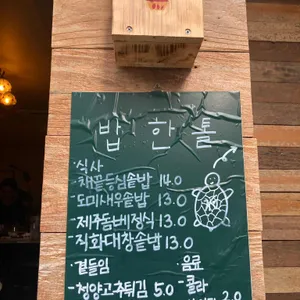 밥 한 톨
·식사
·채끝등심솥밥 14.0
·도미새우솥밥 13.0
·제주돔베정식 13.0
·직화대창솥밥 13.0
·곁들임 ·음료
·청양고추튀김 5.0 -콜라
2.0